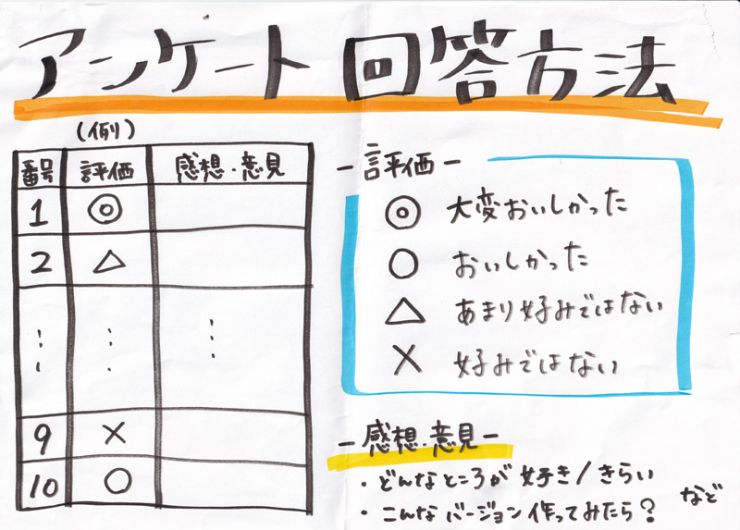 アンケート 回答方法
(例)
番号 評価 感想・意見
1 ◎
2 △
⋮ ⋮ ⋮
9 ×
10 ○
－評価－
◎ 大変おいしかった
○ おいしかった
△ あまり好みではない
× 好みではない
－感想・意見－
・どんなところが好き/きらい
・こんなバージョン作ってみたら? など